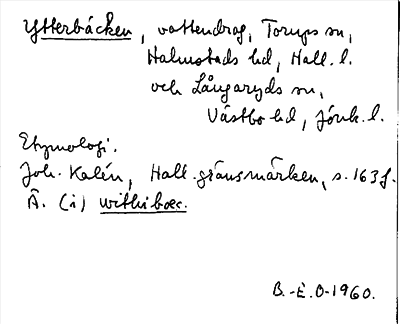 Ytterbäcken, vattendrag, Torups sn,
Halmstads hd, Hall. l.
och Långaryds sn,
Västbo hd, Jönk. l.
Etymologi.
Joh. Kalén, Hall. gränsmärken, s. 163 f.
Ä. (i) withibæc.
B.-E.O-1960.